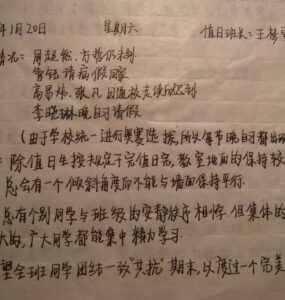 年1月20日 星期六 值日班长:王梦
情况: 周超然、方哲仍未到
管钰请病假回家
高易炜、张凡因返校走读所迟到
李晓琳晚自习请假
(由于学校统一进行奥赛选拔,所以每节晚自习都出
: 除值日生按规定于完值日完,教室地面的保持较
总会有一个倾斜角度而不能与墙面保持平行.
总有个别同学与班级的安静秩序相悖.但集体的
大的,广大同学都能集中精力学习.
望全班同学团结一致"共抗"期末,以度过一个完美